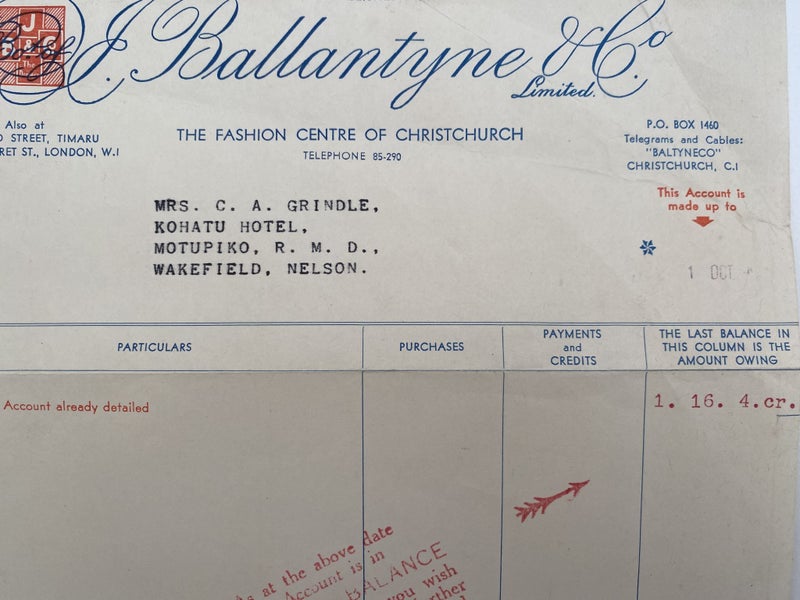 J. Ballantyne & Co
Limited.
Also at
STREET, TIMARU
ST., LONDON, W.1
THE FASHION CENTRE OF CHRISTCHURCH
TELEPHONE 85-290
P.O. BOX 1460
Telegrams and Cables:
"BALTYNECO"
CHRISTCHURCH, C.1
This Account is
made up to
1 OCT
MRS. C. A. GRINDLE,
KOHATU HOTEL,
MOTUPIKO, R. M. D.,
WAKEFIELD, NELSON.
PARTICULARS
PURCHASES
PAYMENTS
and
CREDITS
THE LAST BALANCE IN
THIS COLUMN IS THE
AMOUNT OWING
Account already detailed
1. 16. 4.cr.
As at the above date
Account is in
BALANCE
you wish